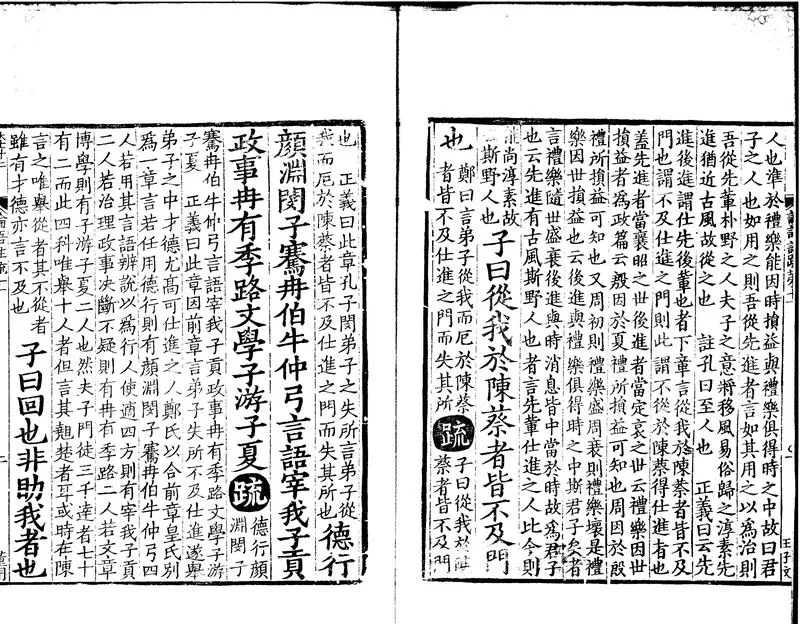 人也準於禮樂能因時損益與禮樂俱得時之中故曰君
子之人也如用之則吾從先進者言如其用之以為治則
吾從先輩朴野之人夫子之意將移風易俗歸之淳素先
進猶近古風故從之也 註孔曰至人也 正義曰云先
進後進謂仕先後輩也者下章言從我於陳蔡者皆不及
門也謂不及仕進之門則此謂不從於陳蔡得仕進者也
蓋先進者當襄昭之世後進者當定哀之世云禮樂因世
損益者為政篇云殷因於夏禮所損益可知也周因於殷
禮所損益可知也又周初則禮樂盛周衰則禮樂壞是禮
樂因世損益也云後進與禮樂俱得時之中斯君子矣者
言禮樂隨世盛衰後進與時消息皆中當於時故為君子
也云先進有古風斯野人也者言先輩仕進之人比今則
尚淳素故斯野人也 子曰從我於陳蔡者皆不及門
也 鄭曰言弟子從我而厄於陳蔡者皆不及仕進之門而失其所 疏 子曰從我於陳蔡者皆不及門
也 正義曰此章孔子閔弟子之失所言弟子從我而厄於陳蔡者皆不及仕進之門而失其所也 德行
顏淵閔子騫冉伯牛仲弓言語宰我子貢
政事冉有季路文學子游子夏 疏 德行顏淵閔子
騫冉伯牛仲弓言語宰我子貢政事冉有季路文學子游
子夏 正義曰此章因前章言弟子失所不及仕進遂舉
弟子之中才德尤高可仕進之人鄭氏以合前章皇氏別
為一章言若任用德行則有顏淵閔子騫冉伯牛仲弓四
人若用其言語辨說以為行人使適四方則有宰我子貢
二人若治理政事決斷不疑則有冉有季路二人若文章
博學則有子游子夏二人也然夫子門徒三千達者七十
有二而此四科唯舉十人者但言其翹楚者耳或時在陳
言之唯舉從者其不從者雖有才德亦言不及也 子曰回也非助我者也